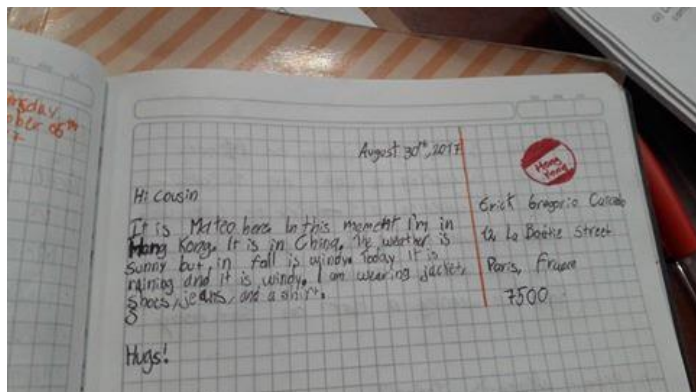 August 30th, 2017
Hi cousin
It is Mateo here. In this moment I'm in
Hong Kong. It is in China. The weather is
sunny but, in fall is windy. Today it is
raining and it is windy. I am wearing jacket,
shoes, jeans, and a shirt.
Hugs!
Hong
Kong
Erick Gregorio
12 La Boétie Street
Paris, France
7500